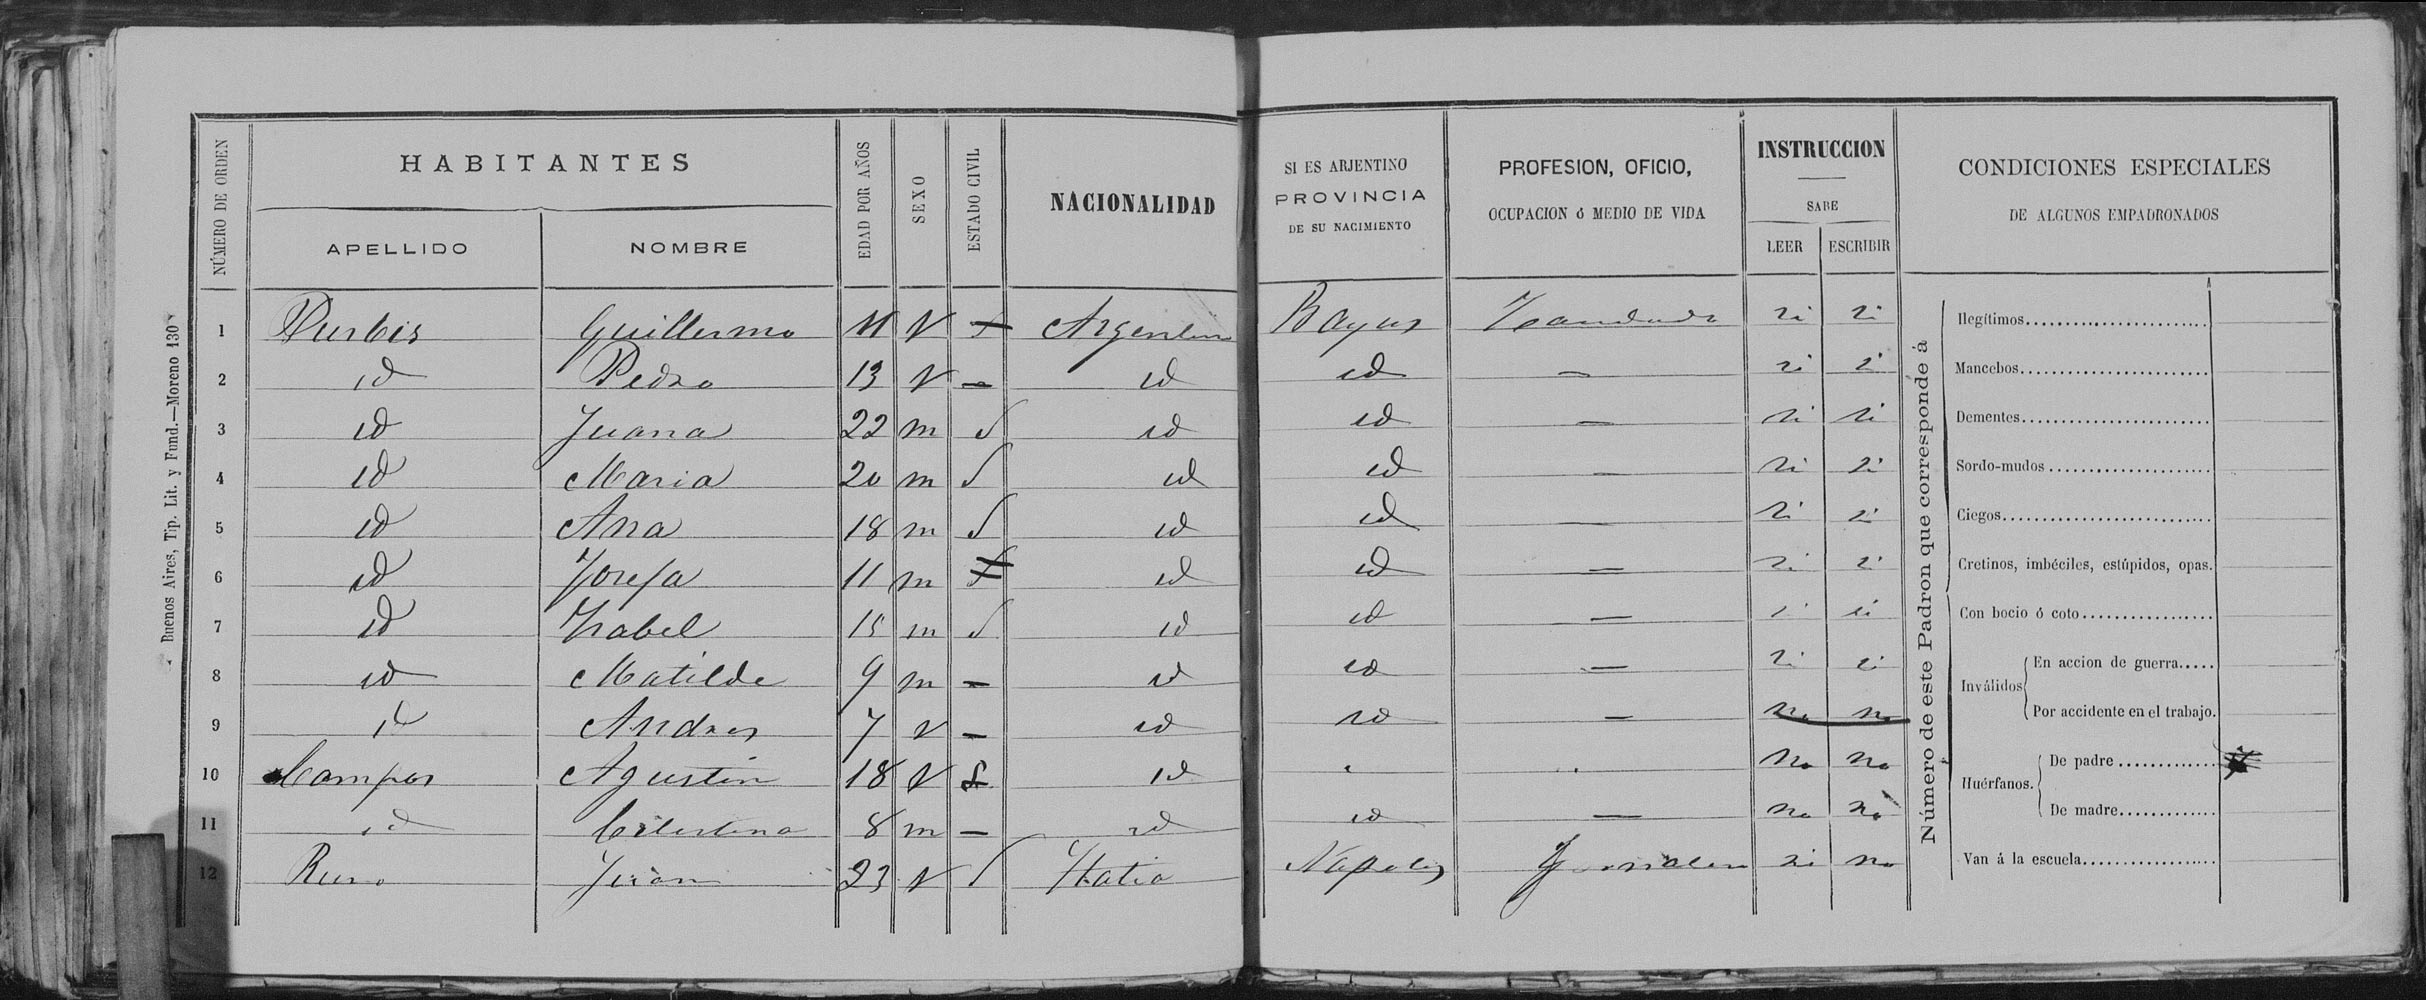 NÚMERO DE ORDEN
HABITANTES
APELLIDO
NOMBRE
EDAD POR AÑOS
SEXO
ESTADO CIVIL
NACIONALIDAD
SI ES ARJENTINO
PROVINCIA
DE SU NACIMIENTO
PROFESION, OFICIO,
OCUPACION ó MEDIO DE VIDA
INSTRUCCION
SABE
LEER
ESCRIBIR
CONDICIONES ESPECIALES
DE ALGUNOS EMPADRONADOS
Buenos Aires, Tip. Lit. y Fund.—Moreno 130
1 Guillermo V Argentin si si
2 id Pedro 13 V — id id — si si
3 id Juana 22 m S id id — si si
4 id Maria 20 m S id id — si si
5 id Ana 18 m S id id — si si
6 id Josefa 11 m id id — si si
7 id Isabel 15 m S id id — si si
8 id Matilde 9 m — id id — si si
9 id Andres 7 V — id id — no no
10 Campos Agustin 18 V S id no no
11 id Celestina 8 m — id id — no no
12 Juan 23 V S Italia Napoles si no
Número de este Padron que corresponde á
Ilegítimos
Mancebos
Dementes
Sordo-mudos
Ciegos
Cretinos, imbéciles, estúpidos, opas.
Con bocio ó coto
Inválidos
En accion de guerra
Por accidente en el trabajo.
Huérfanos.
De padre
De madre
Van á la escuela